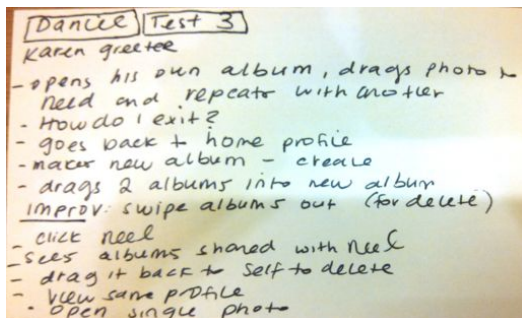 Daniel Test 3
Karen greeter
- opens his own album, drags photo to
Neel and repeats with another
- How do I exit?
- goes back to home profile
- makes new album - create
- drags 2 albums into new album
Improv: swipe albums out (for delete)
- click Neel
- sees albums shared with Neel
- drag it back to self to delete
- view same profile
- open single photo